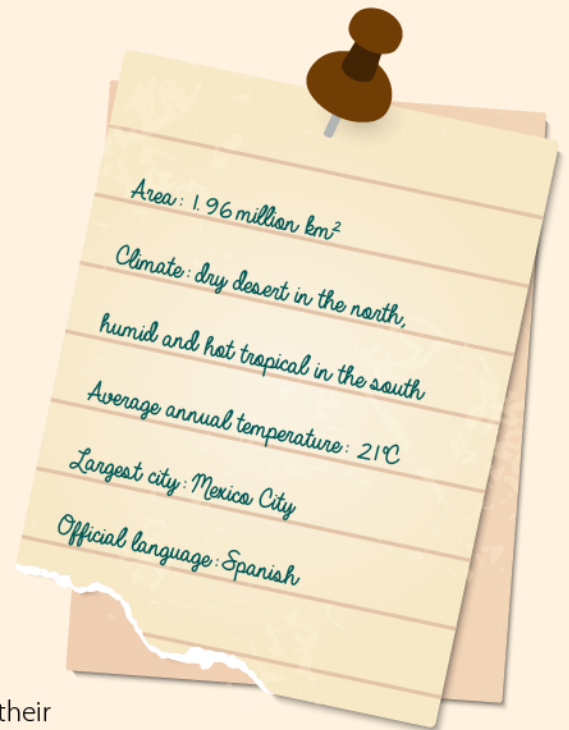 Area: 1.96 million km²
Climate: dry desert in the north,
humid and hot tropical in the south
Average annual temperature: 21°C
Largest city: Mexico City
Official language: Spanish
their